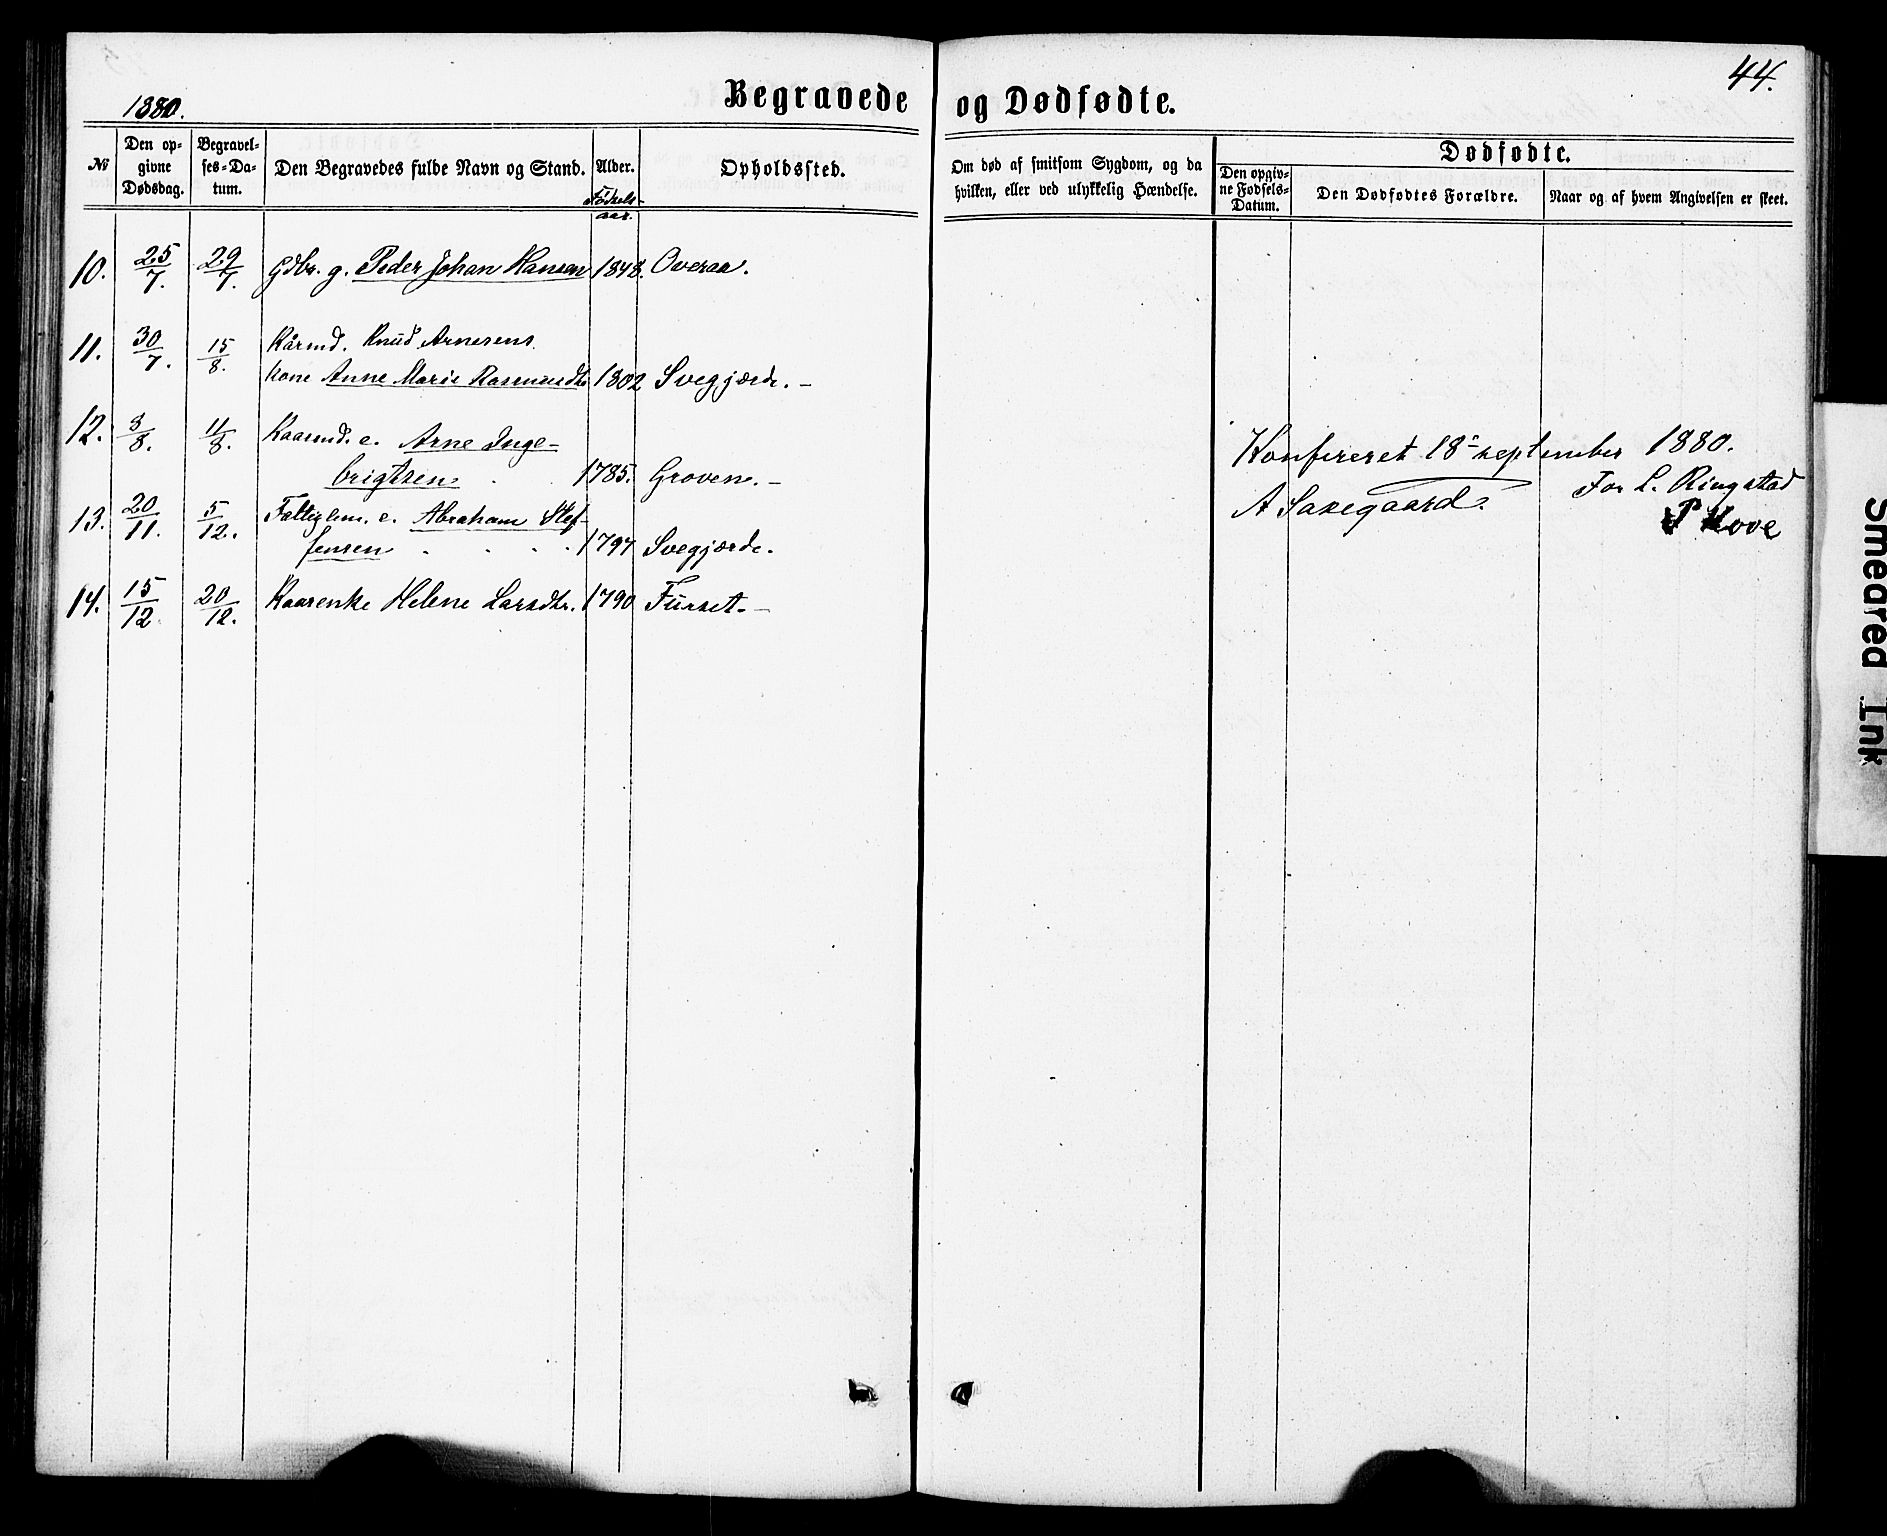 44.
1880.
Begravede og Dødfødte.
№
Den op-
givne
Dødsdag.
Begravel-
ses-Da-
tum.
Den Begravedes fulde Navn og Stand.
Alder.
Fødsels-
aar.
Opholdssted.
Om død af smitsom Sygdom, og da
hvilken, eller ved ulykkelig Hændelse.
Dødfødte.
Den opgiv-
ne Fødsels-
Datum.
Den Dødfødtes Forældre.
Naar og af hvem Angivelsen er skeet.
10. 25/7. 29/7. Gdbr. g. Peder Johan Hansen 1848. Overaa.
11. 30/7. 15/8. Kårmd. Knud Arnesens
Kone Anne Marie Rasmusdtr. 1802 Svegjærde. –
12. 3/8. 11/8. Kaarmd. e. Arne Inge-
brigtsen 1785. Groven. –
13. 20/11. 5/12. Fattiglem. e. Abraham Stef-
fensen 1797 Svegjærde.
14. 15/12. 20/12. Kaarenke Helene Larsdtr. 1790 Furset. –
Konfereret 18. september 1880.
A Saxegaard.
For L. Ringstad
P Hove
Smeared Ink